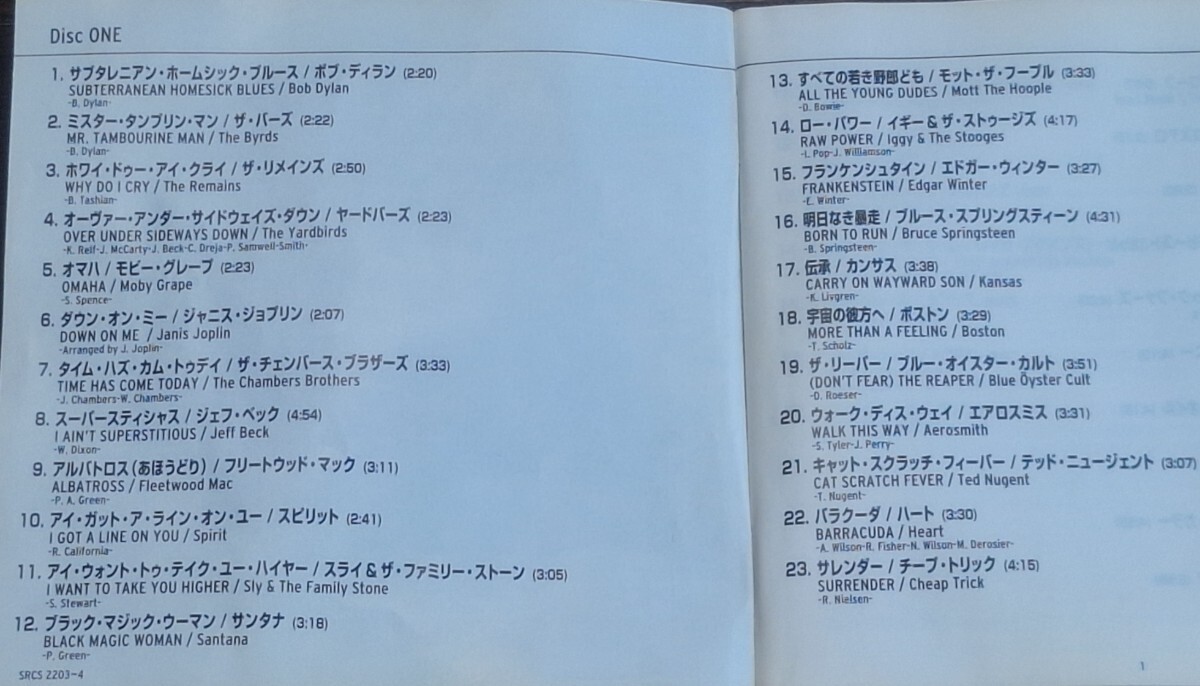 Disc ONE
1. サブタレニアン・ホームシック・ブルース / ボブ・ディラン (2:20)
SUBTERRANEAN HOMESICK BLUES / Bob Dylan
-B. Dylan-
2. ミスター・タンブリン・マン / ザ・バーズ (2:22)
MR. TAMBOURINE MAN / The Byrds
-B. Dylan-
3. ホワイ・ドゥー・アイ・クライ / ザ・リメインズ (2:50)
WHY DO I CRY / The Remains
-B. Tashian-
4. オーヴァー・アンダー・サイドウェイズ・ダウン / ヤードバーズ (2:23)
OVER UNDER SIDEWAYS DOWN / The Yardbirds
-K. Relf-J. McCarty-J. Beck-C. Dreja-P. Samwell-Smith-
5. オマハ / モビー・グレープ (2:23)
OMAHA / Moby Grape
-S. Spence-
6. ダウン・オン・ミー / ジャニス・ジョプリン (2:07)
DOWN ON ME / Janis Joplin
-Arranged by J. Joplin-
7. タイム・ハズ・カム・トゥデイ / ザ・チェンバース・ブラザーズ (3:33)
TIME HAS COME TODAY / The Chambers Brothers
-J. Chambers-W. Chambers-
8. スーパースティシャス / ジェフ・ベック (4:54)
I AIN'T SUPERSTITIOUS / Jeff Beck
-W. Dixon-
9. アルバトロス(あほうどり) / フリートウッド・マック (3:11)
ALBATROSS / Fleetwood Mac
-P. A. Green-
10. アイ・ガット・ア・ライン・オン・ユー / スピリット (2:41)
I GOT A LINE ON YOU / Spirit
-R. California-
11. アイ・ウォント・トゥ・テイク・ユー・ハイヤー / スライ&ザ・ファミリー・ストーン (3:05)
I WANT TO TAKE YOU HIGHER / Sly & The Family Stone
-S. Stewart-
12. ブラック・マジック・ウーマン / サンタナ (3:18)
BLACK MAGIC WOMAN / Santana
-P. Green-
SRCS 2203-4
13. すべての若き野郎ども / モット・ザ・フープル (3:33)
ALL THE YOUNG DUDES / Mott The Hoople
-D. Bowie-
14. ロー・パワー / イギー&ザ・ストゥージズ (4:17)
RAW POWER / Iggy & The Stooges
-I. Pop-J. Williamson-
15. フランケンシュタイン / エドガー・ウィンター (3:27)
FRANKENSTEIN / Edgar Winter
-E. Winter-
16. 明日なき暴走 / ブルース・スプリングスティーン (4:31)
BORN TO RUN / Bruce Springsteen
-B. Springsteen-
17. 伝承 / カンサス (3:38)
CARRY ON WAYWARD SON / Kansas
-K. Livgren-
18. 宇宙の彼方へ / ボストン (3:29)
MORE THAN A FEELING / Boston
-T. Scholz-
19. ザ・リーパー / ブルー・オイスター・カルト (3:51)
(DON'T FEAR) THE REAPER / Blue Öyster Cult
-D. Roeser-
20. ウォーク・ディス・ウェイ / エアロスミス (3:31)
WALK THIS WAY / Aerosmith
-S. Tyler-J. Perry-
21. キャット・スクラッチ・フィーバー / テッド・ニュージェント (3:07)
CAT SCRATCH FEVER / Ted Nugent
-T. Nugent-
22. バラクーダ / ハート (3:30)
BARRACUDA / Heart
-A. Wilson-R. Fisher-N. Wilson-M. Derosier-
23. サレンダー / チープ・トリック (4:15)
SURRENDER / Cheap Trick
-R. Nielsen-
1